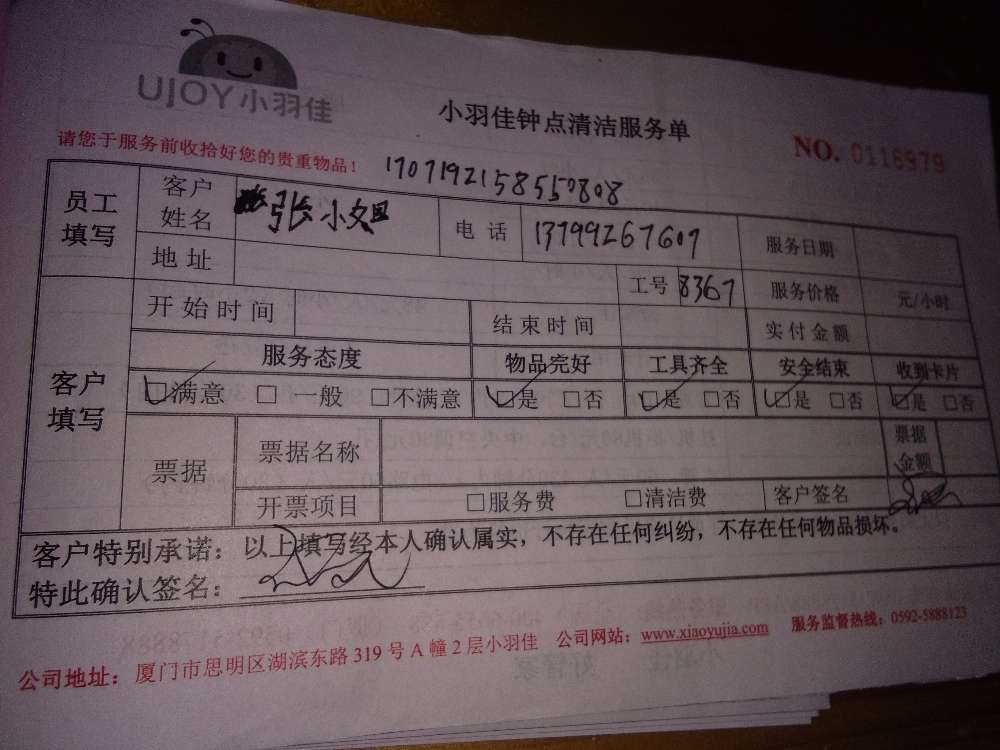 UJOY小羽佳
小羽佳钟点清洁服务单
NO. 0116979
请您于服务前收拾好您的贵重物品！ 1707192158550808
员工填写 客户姓名 张小姐 电话 13799267607 服务日期
地址 工号 8367 服务价格 元/小时
客户填写 开始时间 结束时间 实付金额
服务态度 物品完好 工具齐全 安全结束 收到卡片
☑满意 □一般 □不满意 ☑是 □否 ☑是 □否 ☑是 □否 ☑是 □否
票据 票据名称 票据金额
开票项目 □服务费 □清洁费 客户签名
客户特别承诺：以上填写经本人确认属实，不存在任何纠纷，不存在任何物品损坏。
特此确认签名：
公司地址：厦门市思明区湖滨东路319号A幢2层小羽佳 公司网站：www.xiaoyujia.com 服务监督热线：0592-5888123